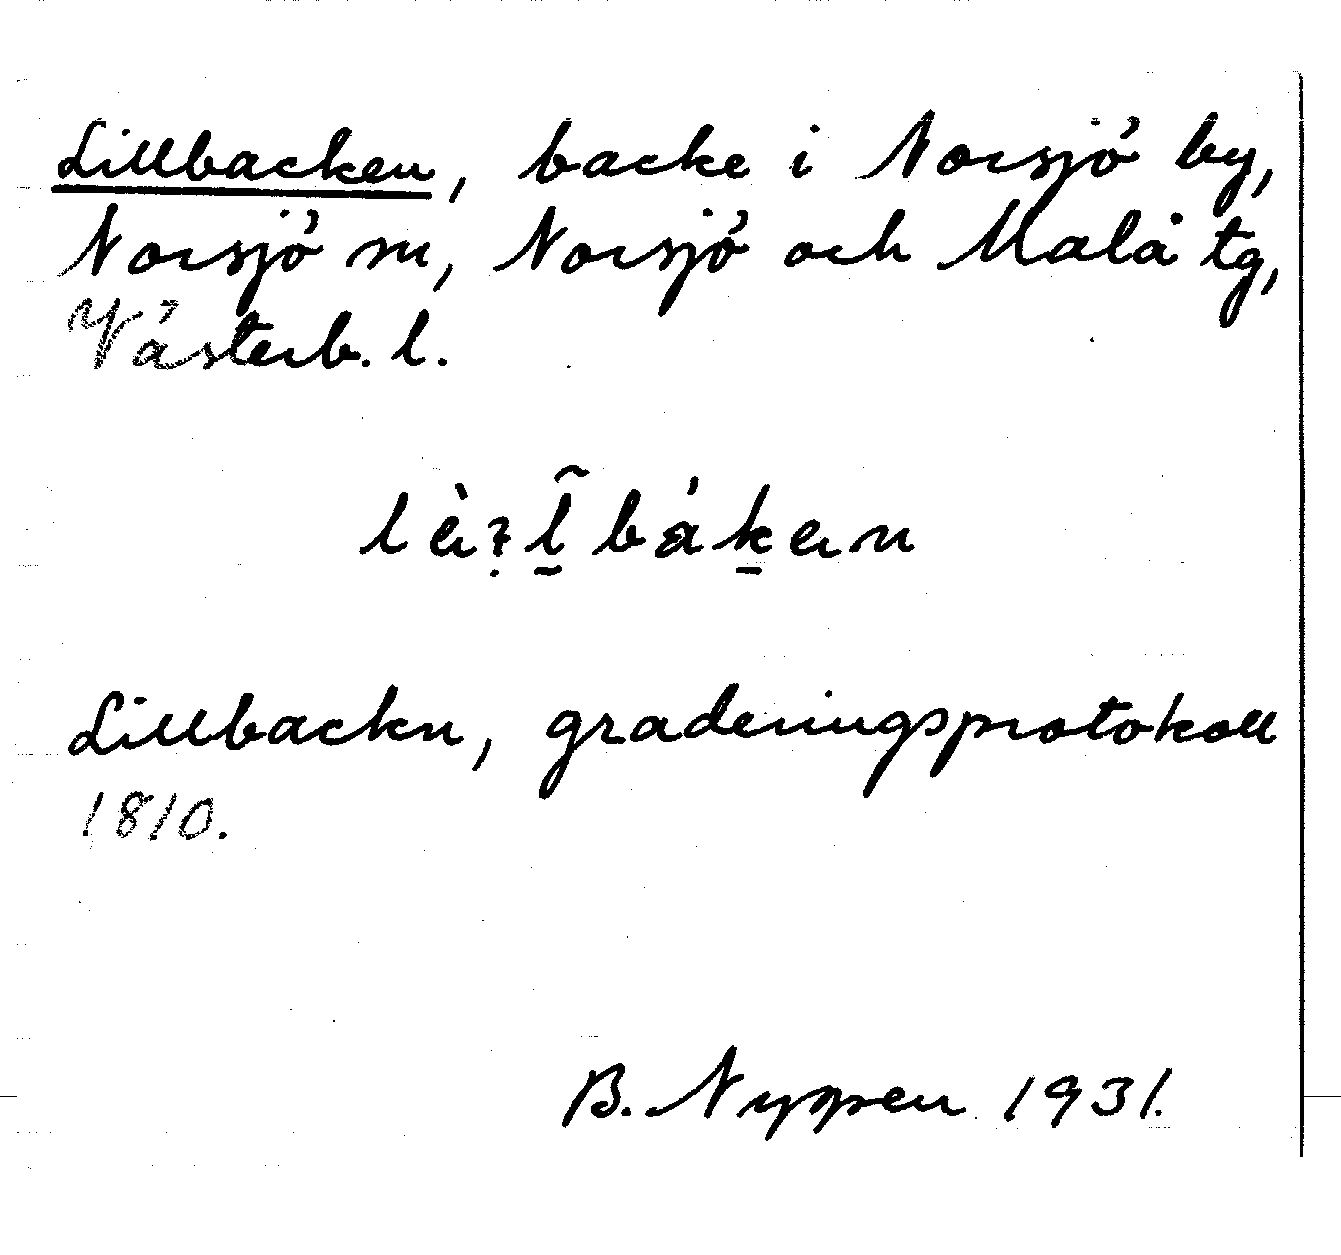 Lillbacken, backe i Norsjö by,
Norsjö sn, Norsjö och Malå tg,
Västerb. l.
Lillbackn, graderingsprotokoll
1810.
B. Nyppen 1931.